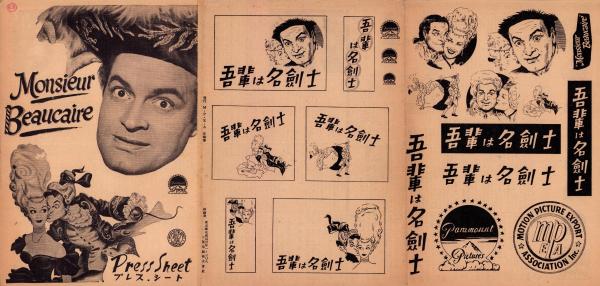 Monsieur
Beaucaire
Press Sheet
プレス・シート
吾輩は名劍士
吾輩は名劍士
吾輩は名劍士
吾輩は名劍士
吾輩は名劍士
吾輩は名劍士
Monsieur
Beaucaire
吾輩は名劍士
吾輩は名劍士
吾輩は名劍士
吾輩は名劍士
Paramount
Pictures
MOTION PICTURE EXPORT
ASSOCIATION Inc.
MPEA